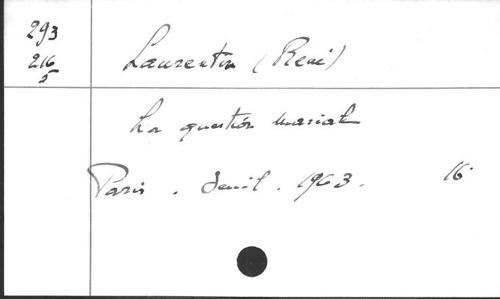 293
216
5
Laurentin (René)
La question mariale
Paris. Seuil. 1963. 16°